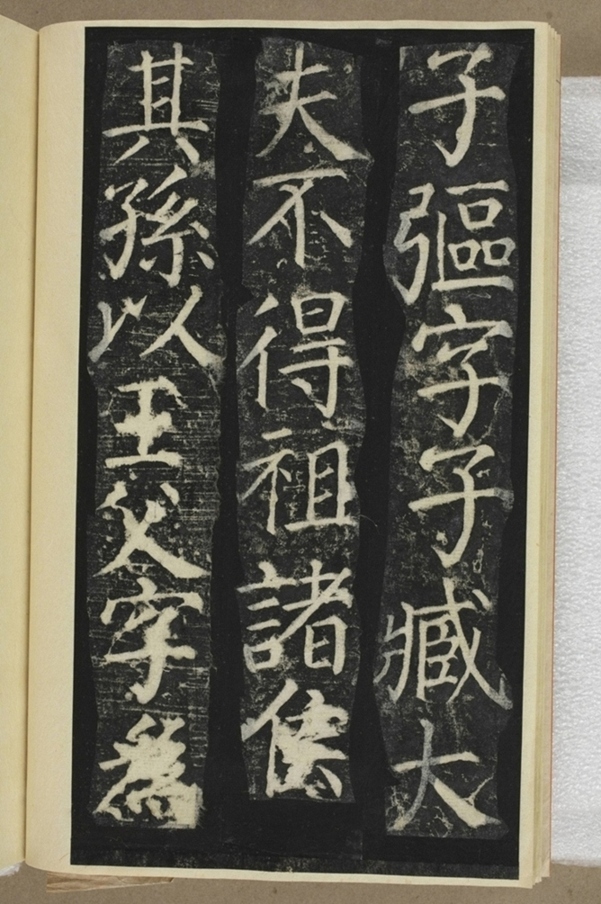 子彄字子臧大
夫不得祖諸侯
其孫以王父字爲